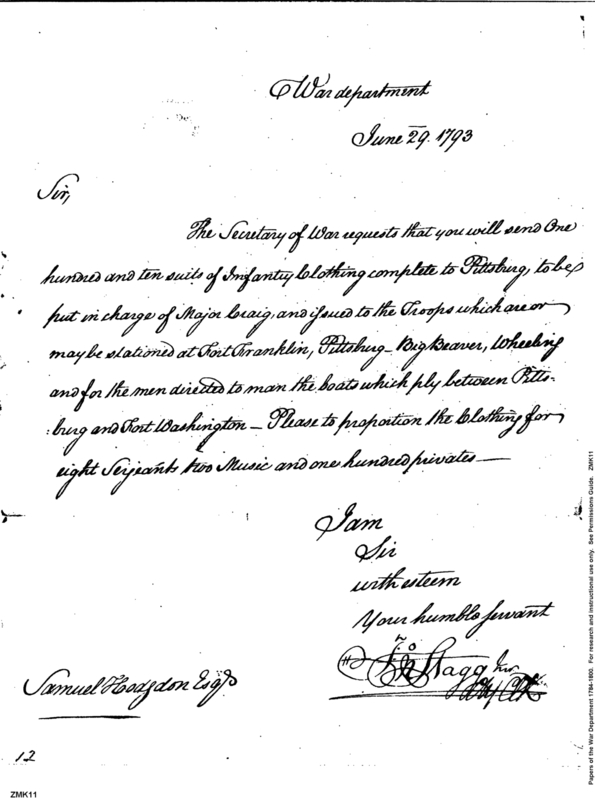 War department
June 29. 1793
Sir,
The Secretary of War requests that you will send One
hundred and ten suits of Infantry Clothing complete to Pittsburg, to be
put in charge of Major Craig, and issued to the Troops which are or
may be stationed at Fort Franklin, Pittsburg - Big Beaver, Wheeling
and for the men directed to man the boats which ply between Pitts-
:burg and Fort Washington - Please to proportion the Clothing for
eight Serjeants two Music and one hundred privates -
I am
Sir
with esteem
Your humble servant
Jno Stagg Junr
Samuel Hodgdon Esqr
12
ZMK11
Papers of the War Department 1784-1800. For research and instructional use only. See Permissions Guide. ZMK11